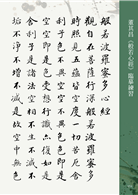 董其昌《般若心經》臨摹練習
般若波羅蜜多心經
觀自在菩薩行深般若波羅蜜多
時照見五蘊皆空度一切苦厄舍
利子色不異空空不異色色即是
空空即是色受想行識亦復如是
舍利子是諸法空相不生不滅不
垢不淨不增不減是故空中無色